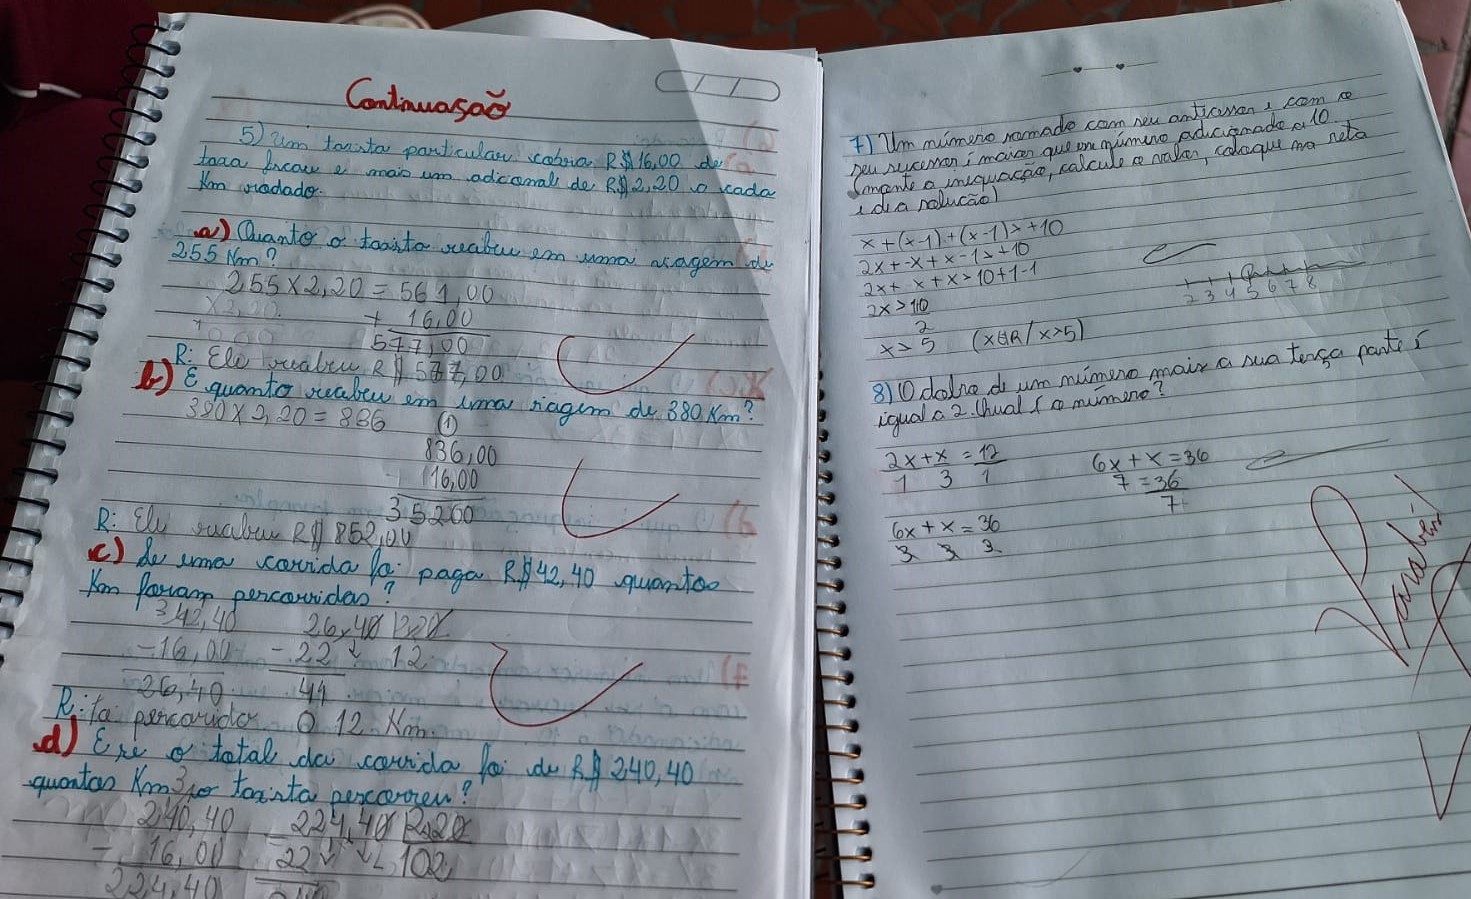 Continuasaõ
5) Um taxista particular cobra R$ 16,00 de
taxa ficau e mais um adicional de R$ 2,20 o cada
Km rodado.
a) Quanto o taxista recebeu em uma viagem de
255 Km?
255 x 2,20 = 561,00
+ 16,00
577,00
R: Ele recebeu R$ 577,00
b) E quanto recebeu em uma viagem de 380 Km?
380 x 2,20 = 836
836,00
16,00
R: Ele recebeu R$ 852,00
c) de uma corrida foi paga R$ 42,40 quantos
Km foram percorridos?
42,40
-16,00
26,40
26,40 2,20
-22 12
44
R: foi percorrido 12 Km.
d) E se o total da corrida foi de R$ 240,40
quantos Km o taxista percorreu?
240,40
- 16,00
224,40
224,40 2,20
22 102
7) Um número somado com seu anticessor e com o
seu sucessor é maior que um número adicionado a 10
(monte a inequação, calcule o valor, coloque na reta
e dê a solução)
x + (x-1) + (x-1) > +10
2x + -x + x - 1 > +10
2x + x + x > 10 + 1 - 1
2x > 10
2
x > 5 (x∈R / x>5)
2 3 4 5 6 7 8
8) O dobro de um número mais a sua terça parte é
igual a 2. Qual é o número?
2x + x = 12
1 3 1
6x + x = 36
3 3 3
6x + x = 36
7 = 36
7
Parabéns!